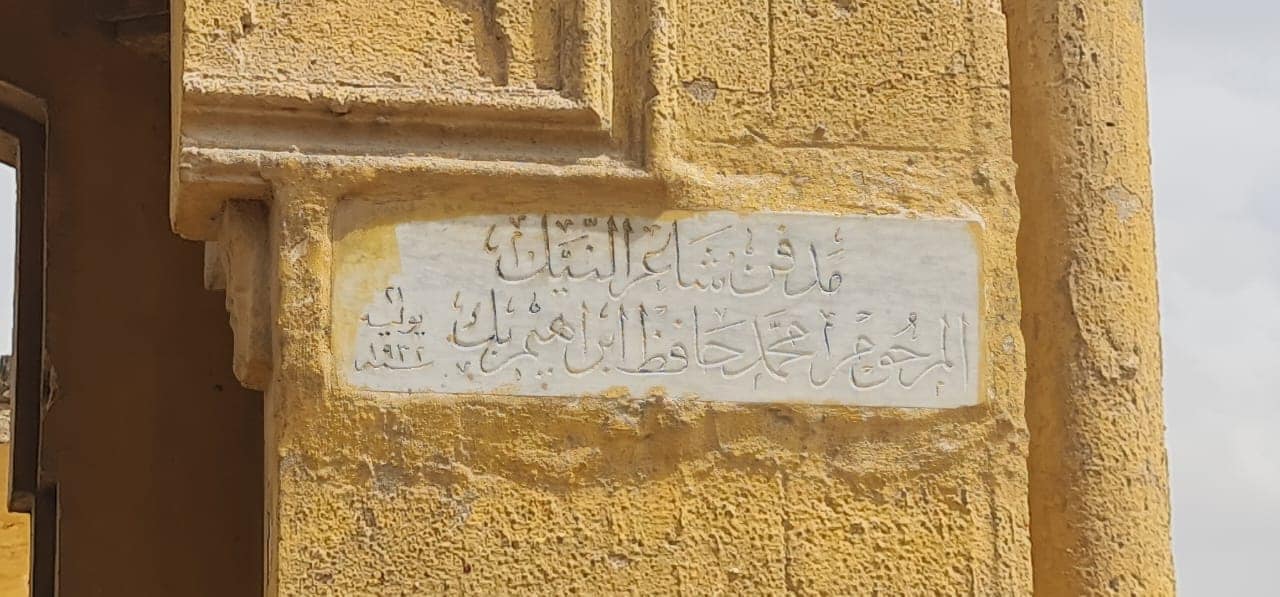 مدفن شاعر النيل
المرحوم محمد حافظ ابراهيم بك
٢١ يوليه
سنة ١٩٣٢